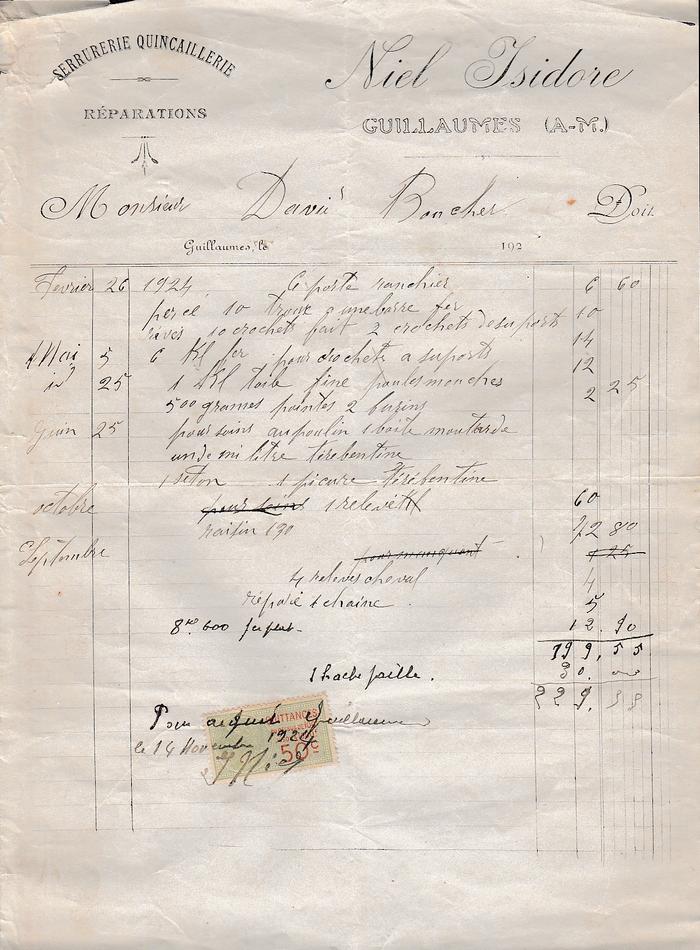 SERRURERIE QUINCAILLERIE
RÉPARATIONS
Niel Isidore
GUILLAUMES (A-M.)
Monsieur Boucher Doit
Guillaumes, le 192
Fevrier 26 1924 6 porte ranchier 6 60
percé 10 trous a une barre fer 10
rives 10 crochets fait 2 crochets de suports
14
Mai 5 6 Kl fer pour crochets a suports 12
id 25 1 Kl toile fine poulesmouches 2 25
500 grames pointes 2 burins
Guin 25 pour soins au poulin 1 boite moutarde
un demi litre tirebentine
1 seton 1 picure Tirebentine
octobre pour soins 1 relevé 60
raisin 190 72 80
Septembre pour manquant + 25
4 releves cheval 4
réparé 1 chaine 5
600 12.90
199,55
1 hache paille. 30.00
229.
QUITTANCES
50c
Pour acquit Guillaumes
le 14 Novembre 1924
Niel